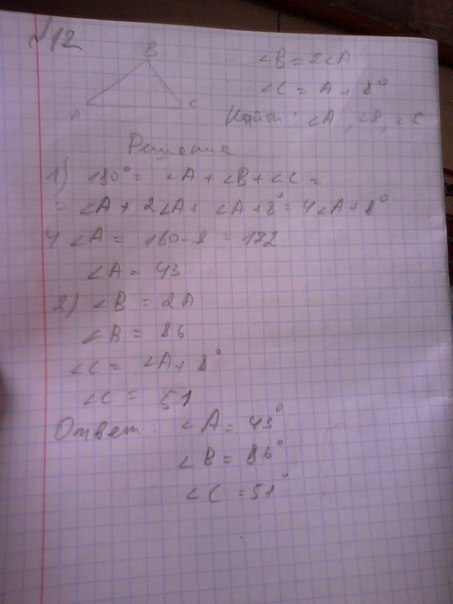 №12
B
A
C
∠B = 2∠A
∠C = A + 8°
Найти: ∠A, ∠B, ∠C
Решение
1) 180° = ∠A + ∠B + ∠C =
= ∠A + 2∠A + ∠A + 8° = 4∠A + 8°
4∠A = 180 - 8 = 172
∠A = 43
2) ∠B = 2A
∠B = 86
∠C = ∠A + 8°
∠C = 51
Ответ: ∠A = 43°
∠B = 86°
∠C = 51°